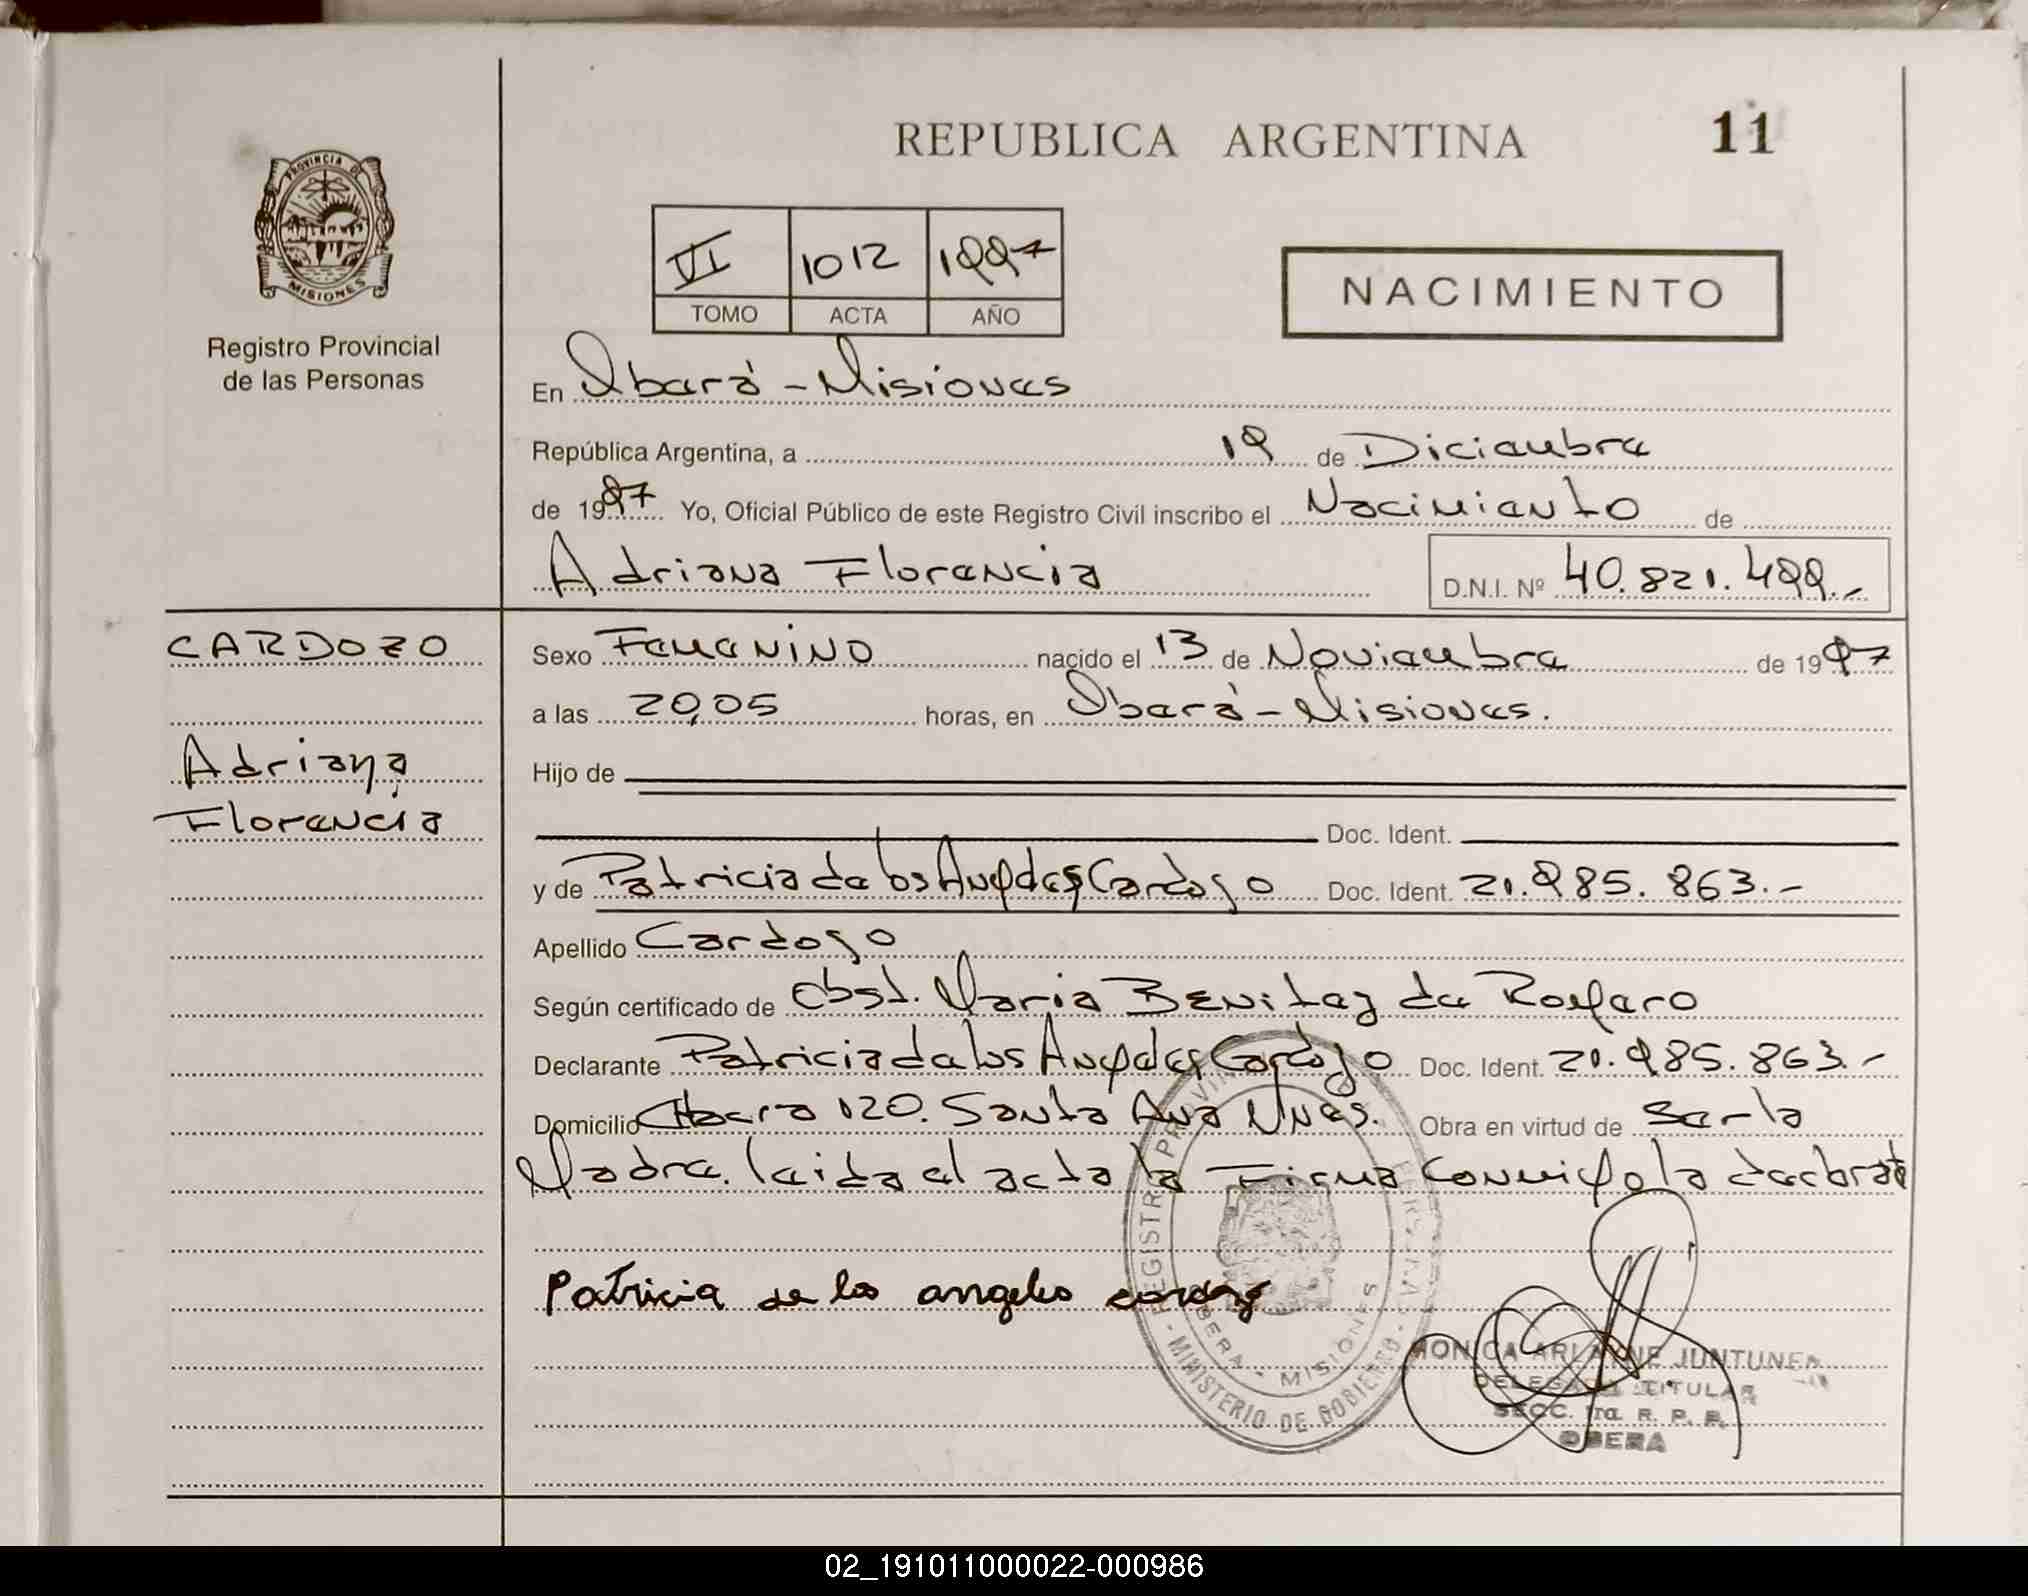 REPUBLICA ARGENTINA 11
PROVINCIA DE MISIONES
Registro Provincial
de las Personas
VI 1012 1997
TOMO ACTA AÑO
NACIMIENTO
En Oberá - Misiones
República Argentina, a 19 de Diciembre
de 1997 Yo, Oficial Público de este Registro Civil inscribo el Nacimiento de
Adriana Florencia D.N.I. Nº 40.821.499.-
CARDOZO
Adriana
Florencia
Sexo Femenino nacido el 13 de Noviembre de 1997
a las 20,05 horas, en Oberá - Misiones.
Hijo de
Doc. Ident.
y de Patricia de los Angeles Cardozo Doc. Ident. 21.985.863.-
Apellido Cardozo
Según certificado de Obst. Maria Benitez de
Declarante Patricia de los Angeles Cardozo Doc. Ident. 21.985.863.-
Domicilio 120. Santa Ana Mnes. Obra en virtud de Ser la
Madre. leida el acta la Firma conmigo la declarate
Patricia de los angeles cardozo
REGISTRO PROVINCIAL DE LAS PERSONAS
OBERA - MISIONES
- MINISTERIO DE GOBIERNO -
MONICA ARLAINE JUNTUNEN
DELEGADA TITULAR
SECC. 1ra. R. P. P.
OBERA
02_191011000022-000986